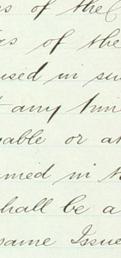 s of the
s of the
used in su
t any Inn
able or a
amed in t
shall be a
same Issue